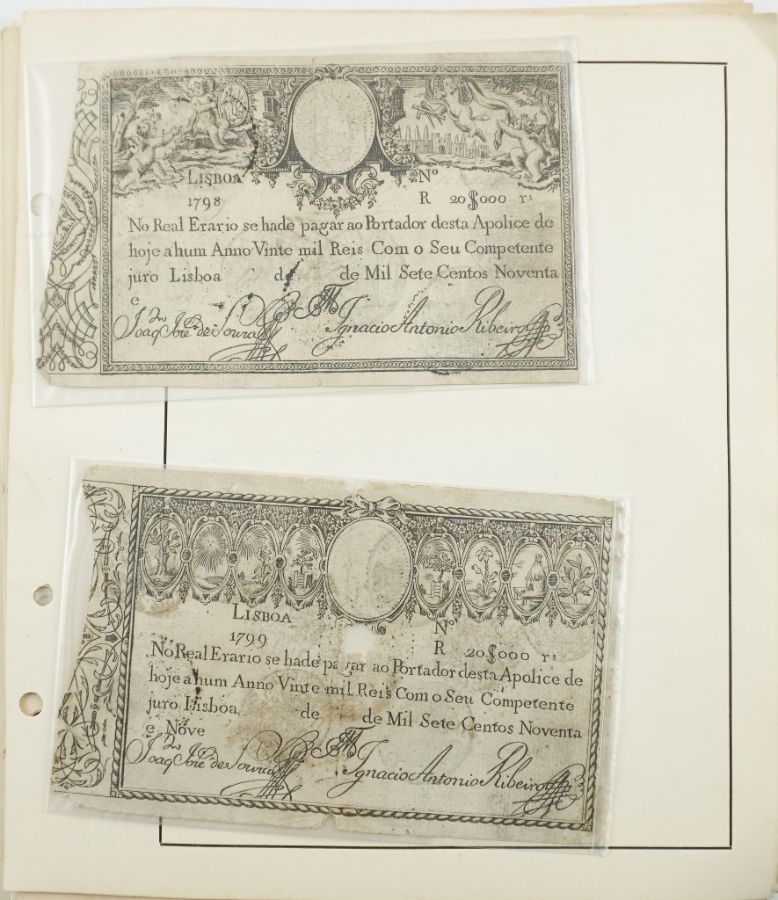 LISBOA Nº
1798 R 20$000 rs
No Real Erario se hade pagar ao Portador desta Apolice de
hoje a hum Anno Vinte mil Reis Com o Seu Competente
juro Lisboa de de Mil Sete Centos Noventa
e
Joaq Joze de Souza Ignacio Antonio Ribeiro
LISBOA Nº
1799 R 20$000 rs
No Real Erario se hade pagar ao Portador desta Apolice de
hoje a hum Anno Vinte mil Reis Com o Seu Competente
juro Lisboa de de Mil Sete Centos Noventa
e Nove
Joaq Joze de Souza Ignacio Antonio Ribeiro